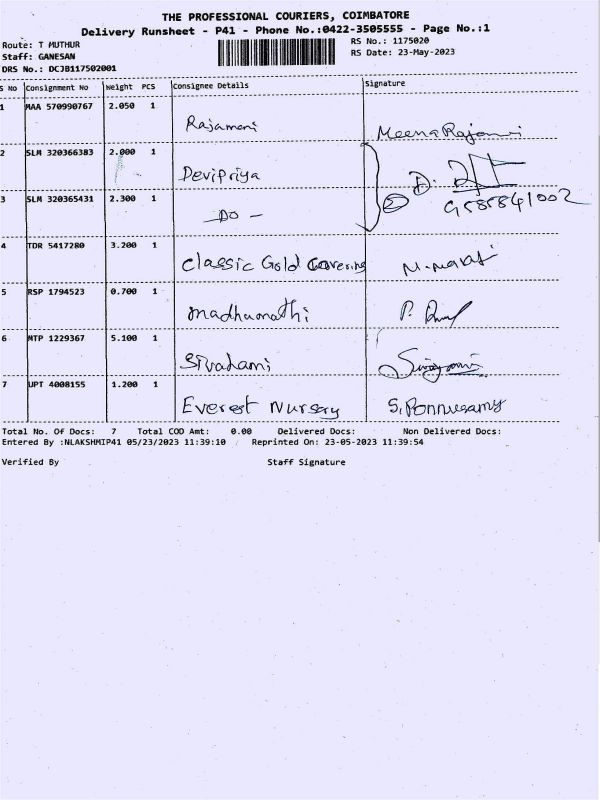 THE PROFESSIONAL COURIERS, COIMBATORE
Delivery Runsheet - P41 - Phone No.:0422-3505555 - Page No.:1
Route: T MUTHUR RS No.: 1175020
Staff: GANESAN RS Date: 23-May-2023
DRS No.: DCJB117502001
S No Consignment No Weight PCS Consignee Details Signature
1 MAA 570990767 2.050 1
Rajamani Meena Rajamani
2 SLM 320366383 2.000 1
Devipriya D.
3 SLM 320365431 2.300 1
- DO - 2 9585841002
4 TDR 5417280 3.200 1
Classic Gold Covering
5 RSP 1794523 0.700 1
madhumathi P.
6 MTP 1229367 5.100 1
7 UPT 4008155 1.200 1
Everest Nursery S. Ponnusamy
Total No. Of Docs: 7 Total COD Amt: 0.00 Delivered Docs: Non Delivered Docs:
Entered By :NLAKSHMIP41 05/23/2023 11:39:10 Reprinted On: 23-05-2023 11:39:54
Verified By Staff Signature